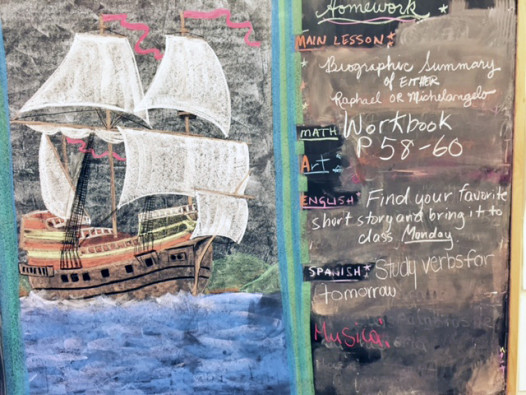 Homework
MAIN LESSON:
Biographic Summary
of EITHER
Raphael OR Michelangelo
MATH: Workbook
P 58-60
Art:
ENGLISH: Find your favorite
short story and bring it to
class Monday.
SPANISH: Study verbs for
tomorrow
Musica: